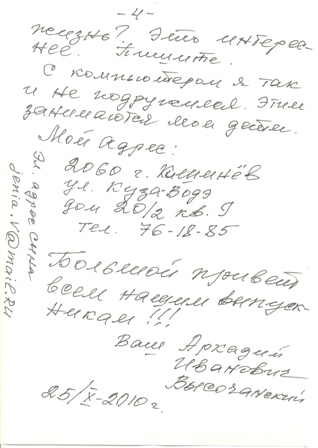 - 4 -
жизнь? Это интерес-
нее. Пишите.
С компьютером я так
и не подружился. Этим
занимаются мои дети.
Мой адрес:
2060 г. Кишинёв
ул. Куза-Водэ
дом 20/2 кв. 9
тел. 76-18-85
Эл. адрес сына
jenia.V@mail.RU
Большой привет
всем нашим выпуск-
никам!!!
Ваш Аркадий
Иванович
Высочанский
25/X-2010 г.